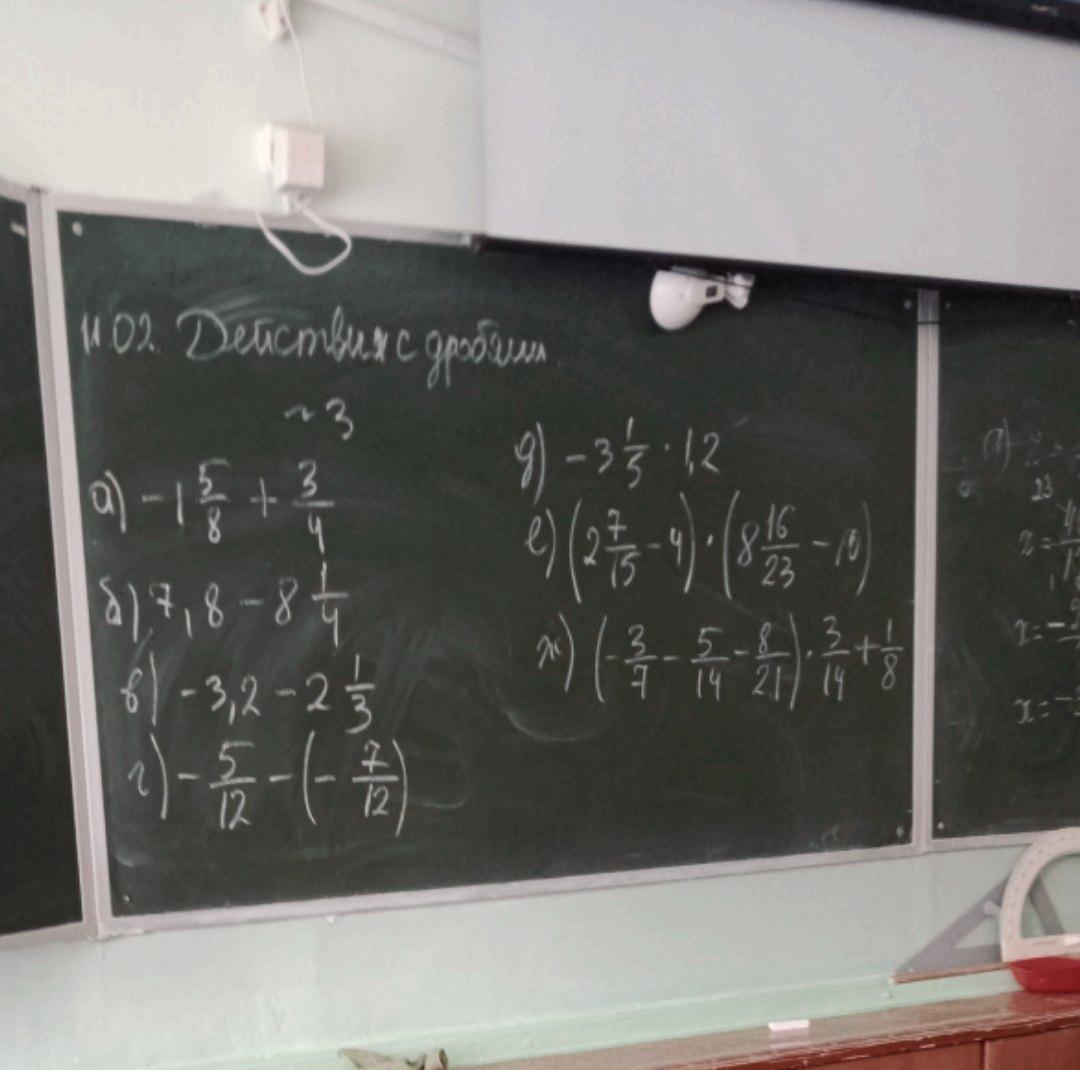 11.02. Действия с дробями.
~ 3
а) -1 5/8 + 3/4
б) 7,8 - 8 1/4
в) -3,2 - 2 1/3
г) - 5/12 - (- 7/12)
д) -3 1/3 · 1,2
е) (2 7/15 - 4) · (8 16/23 - 10)
ж) (- 3/7 - 5/14 - 8/21) · 3/14 + 1/8
23
x =
x = -
x = -